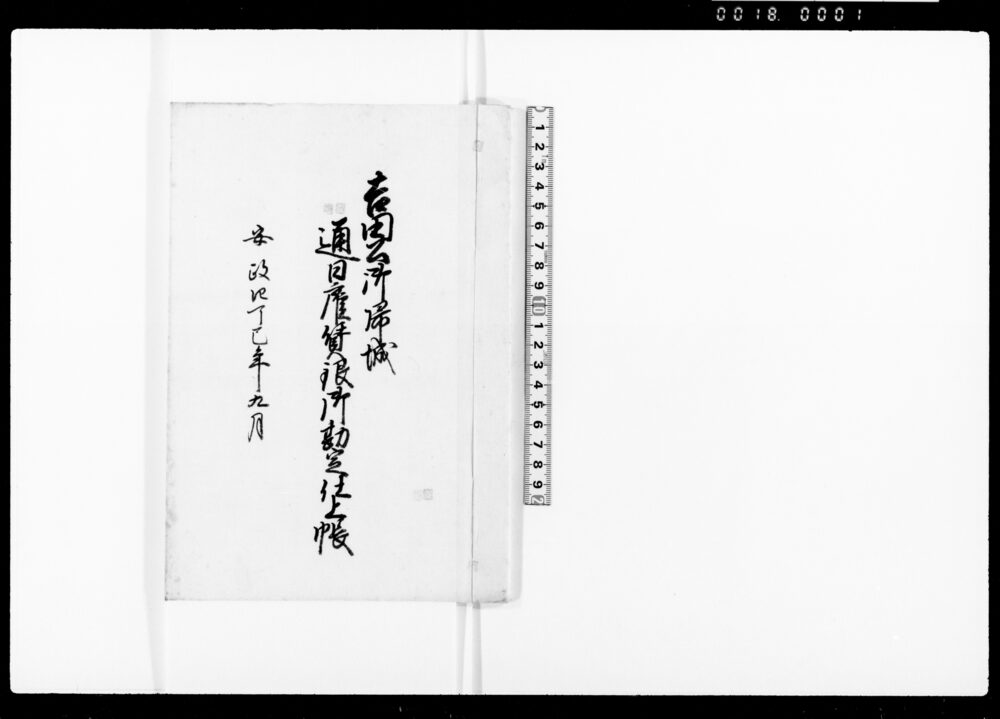 0018. 0001
吉田公御帰城
通日雇賃銀御勘定仕上帳
安政四丁巳年九月
1 2 3 4 5 6 7 8 9 10 1 2 3 4 5 6 7 8 9 2